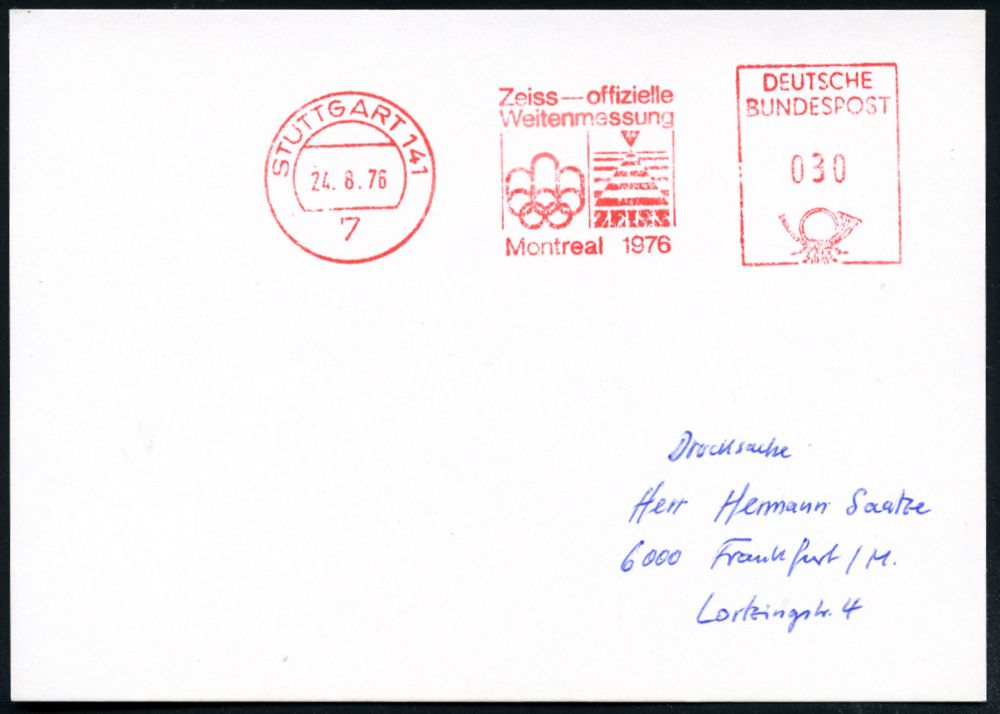 STUTTGART 141
24. 8. 76
7
Zeiss—offizielle
Weitenmessung
ZEISS
Montreal 1976
DEUTSCHE
BUNDESPOST
030
Drucksache
Herr Hermann Saatze
6000 Frankfurt / M.
Lortzingstr. 4